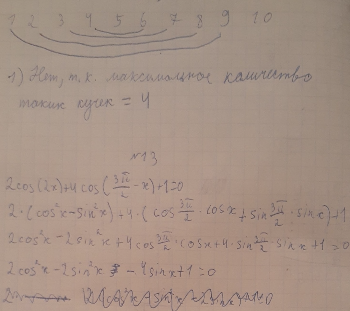 1 2 3 4 5 6 7 8 9 10
1) Нет, т.к. максимальное количество
таких кучек = 4
№13
2cos(2x)+4cos(3π/2-x)+1=0
2·(cos²x-sin²x)+4·(cos 3π/2·cosx+sin 3π/2·sinx)+1
2cos²x-2sin²x+4cos 3π/2·cosx+4·sin 3π/2·sinx+1=0
2cos²x-2sin²x-4sinx+1=0